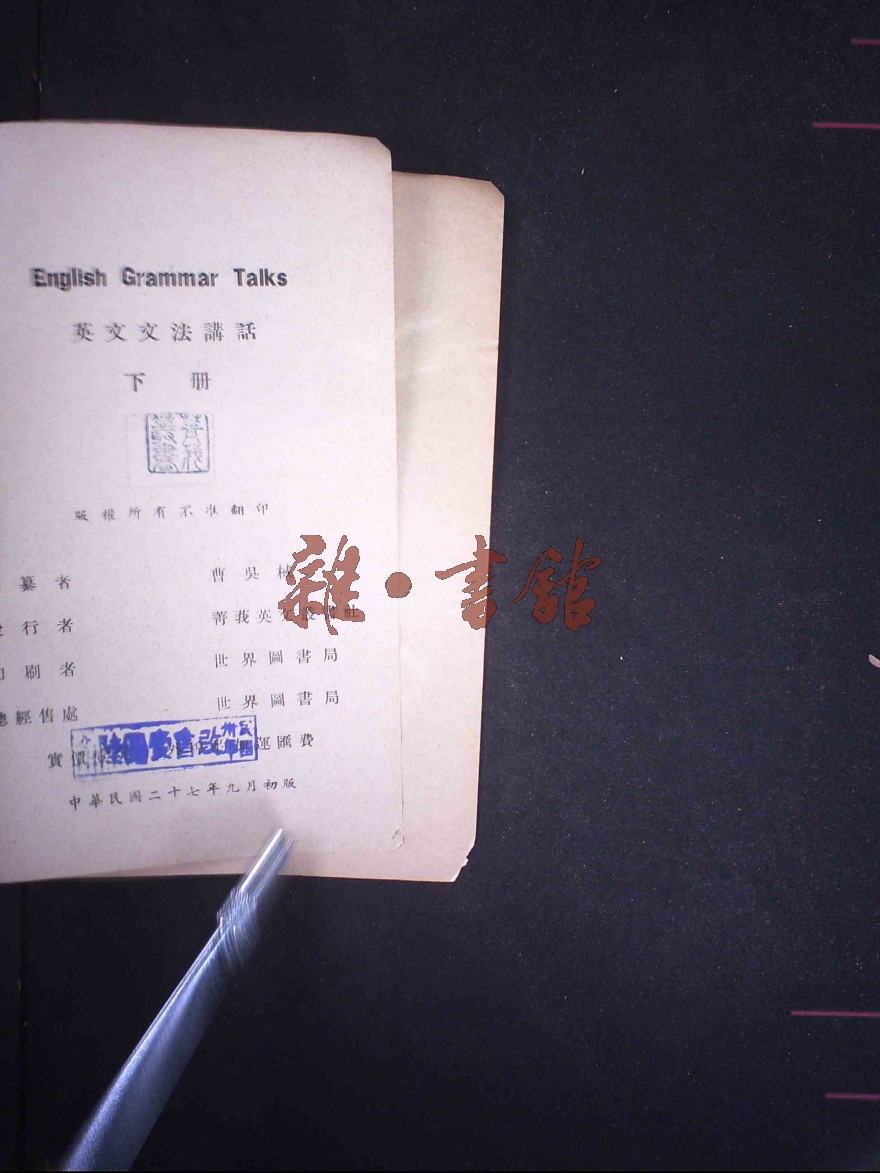 English Grammar Talks
英文文法講話
下册
版權所有不准翻印
纂者 曹吳
行者 菁莪英文叢書社
印刷者 世界圖書局
總經售處 世界圖書局
實價 運匯費
中華民國二十七年九月初版
雜·書館